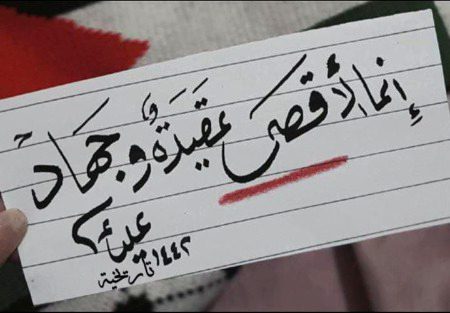 إنما الأقصى عقيدةٌ وجهاد
علياء
١٤٤٢
تاريخية